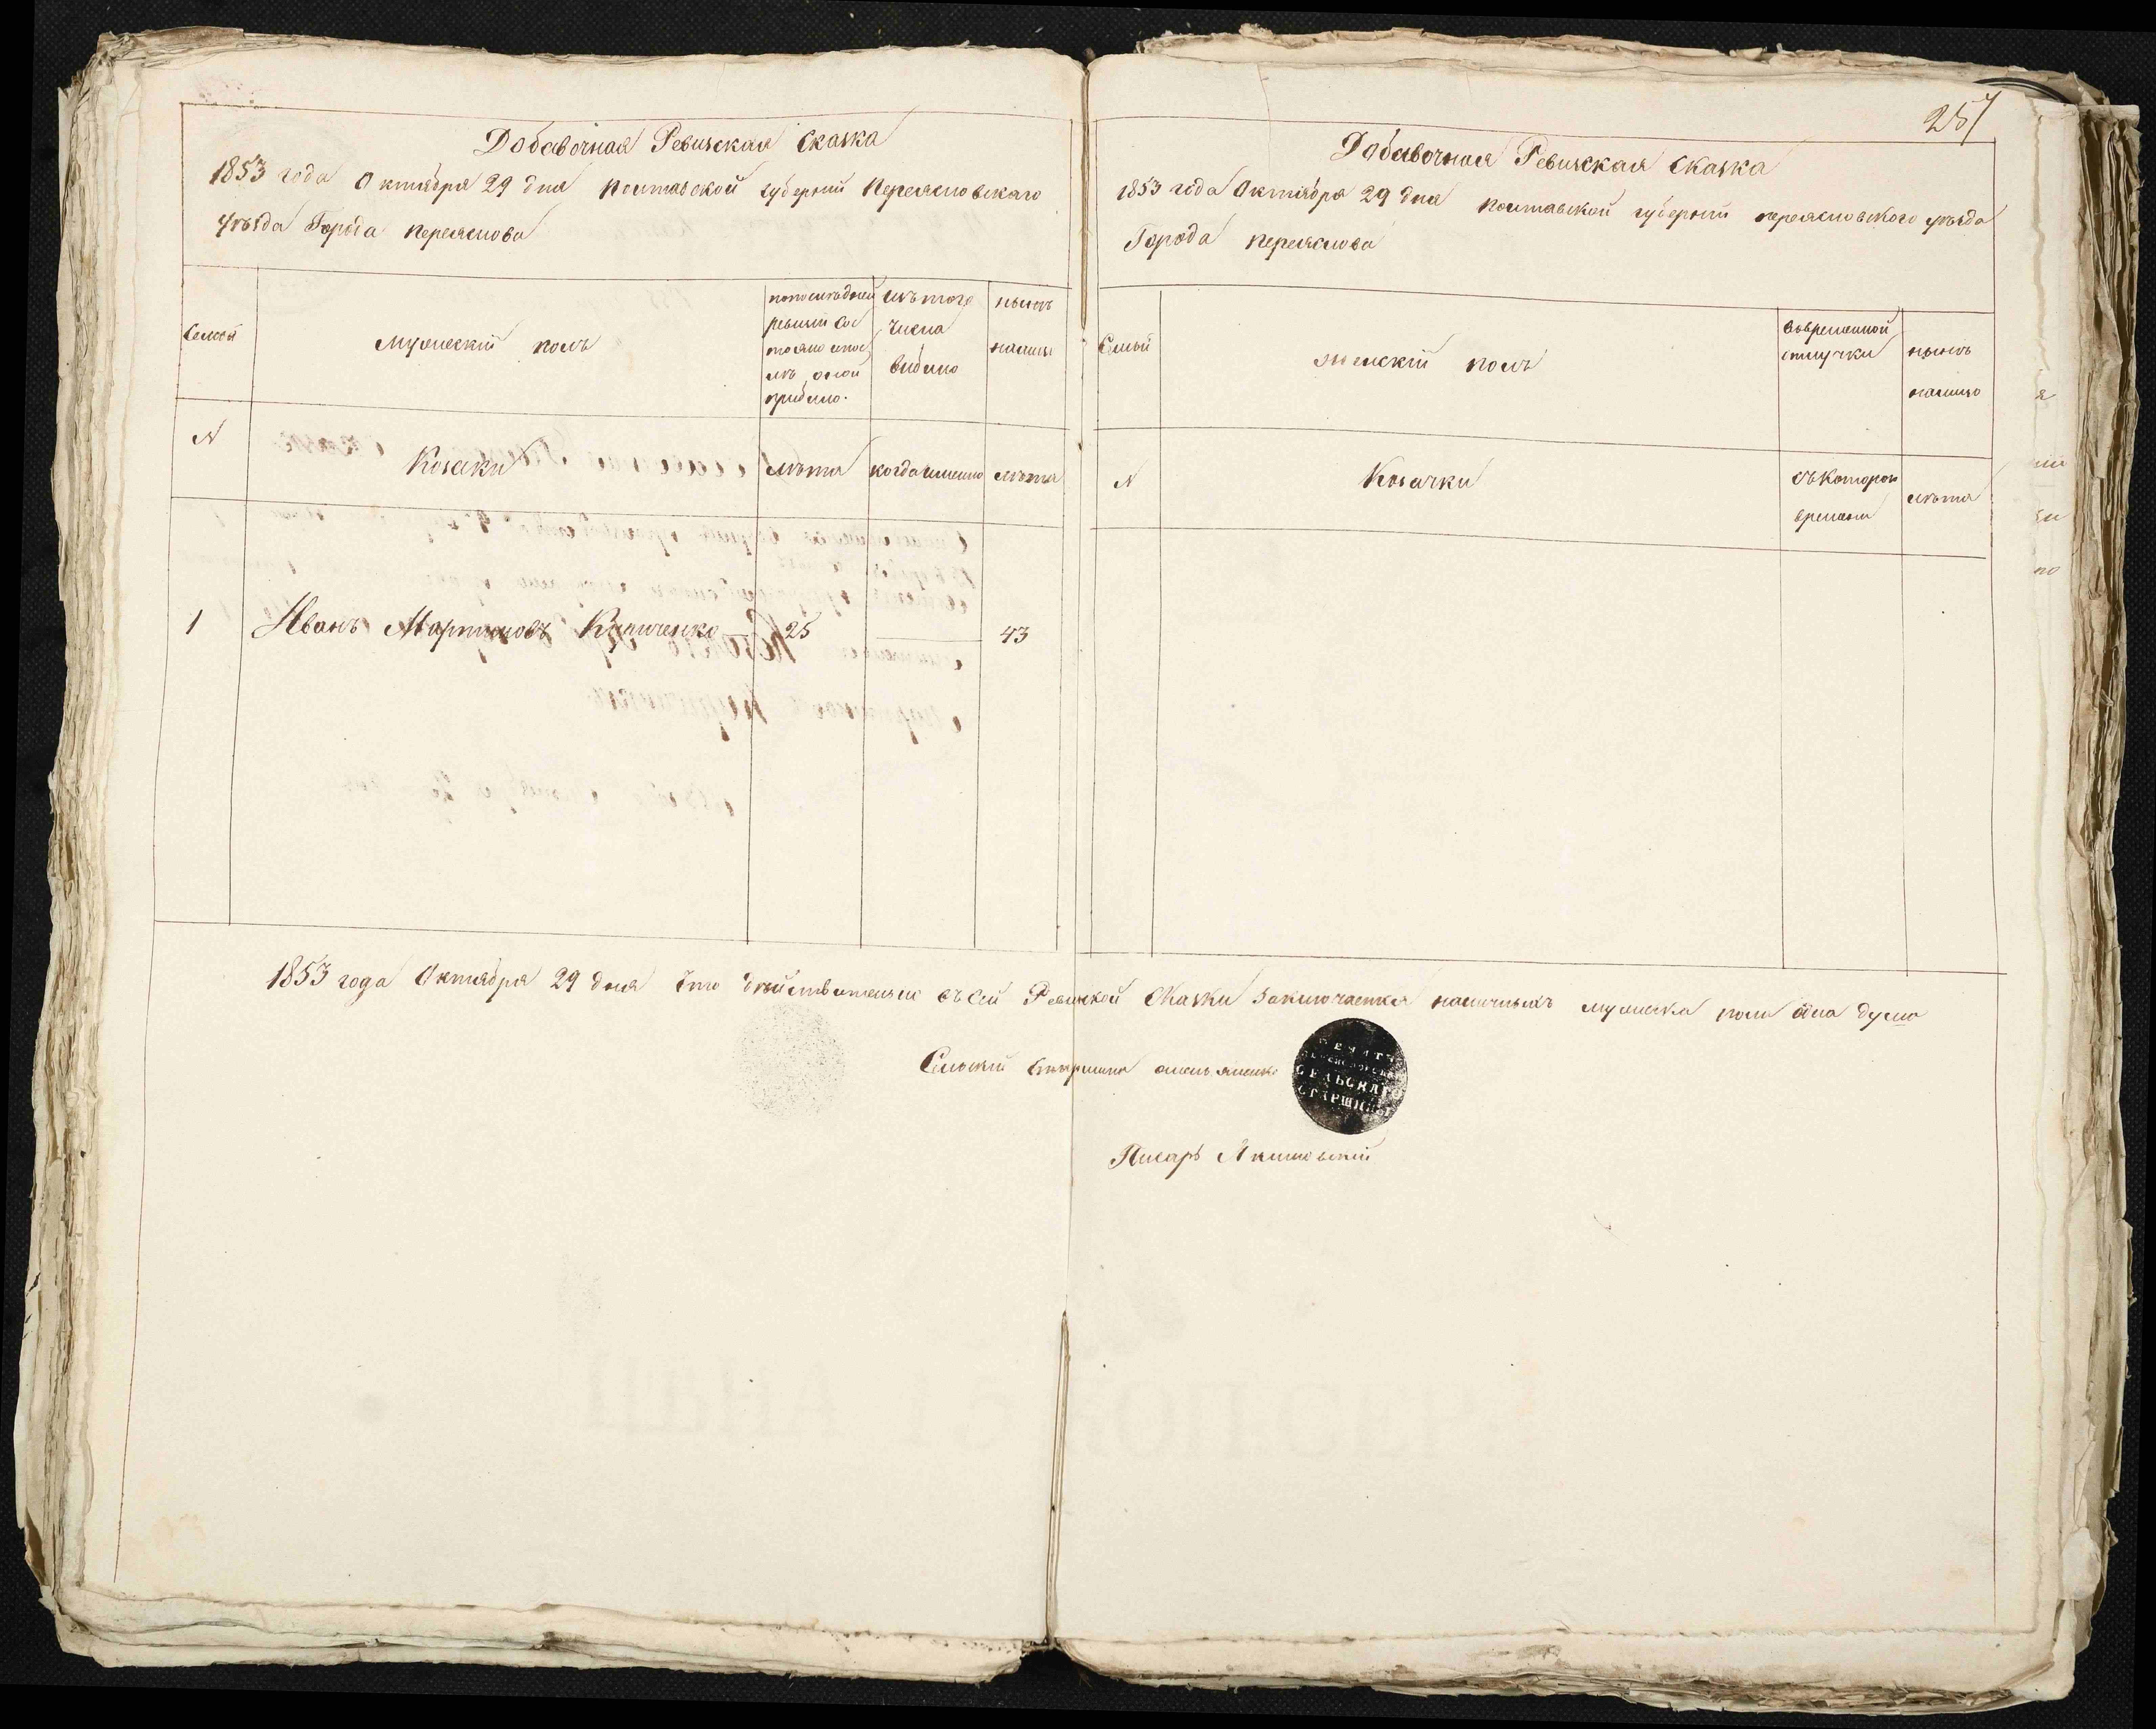 Добавочная Ревизская Сказка
1853 года Октября 29 дня Полтавской губернии Переясловского
уѣзда Города Переяслова
Семьи
Мужеский полъ
по последней
ревизии сос
тояло и пос
лѣ оной
прибыло.
изъ того
числа
выбыло
нынѣ
налицо
N
Козаки
лѣта
когда именно
лѣта
1
Иванъ Мартиновъ Кириченко
25
43
257
Добавочная Ревизская Сказка
1853 года Октября 29 дня Полтавской губернии переясловского уѣзда
Города переяслова
Семьи
женскій полъ
во временной
отлучки
нынѣ
налицо
N
Козачки
съ котораго
времени
лѣта
1853 года Октября 29 дня Что дѣйствительно въ сей Ревизкой Сказки Заключается наличныхъ мужеска пола одна душа
Сельскій Старшина
ПЕЧАТЬ
СЕЛЬСКАГО
СТАРШИНЫ
Писарь Якимовскій